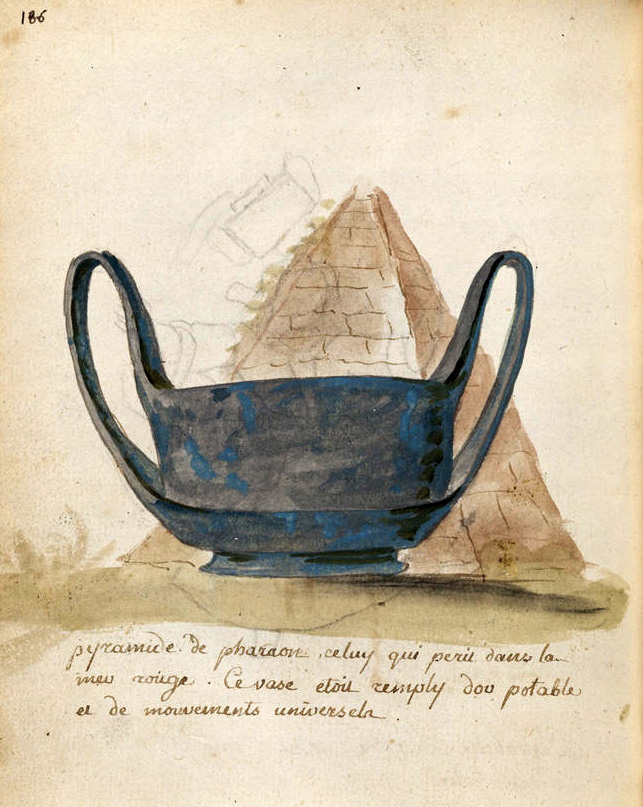 186
pyramide de pharaon, celuy qui perit dans la
mer rouge. Ce vase etoit remply d'or potable
et de mouvements universels.